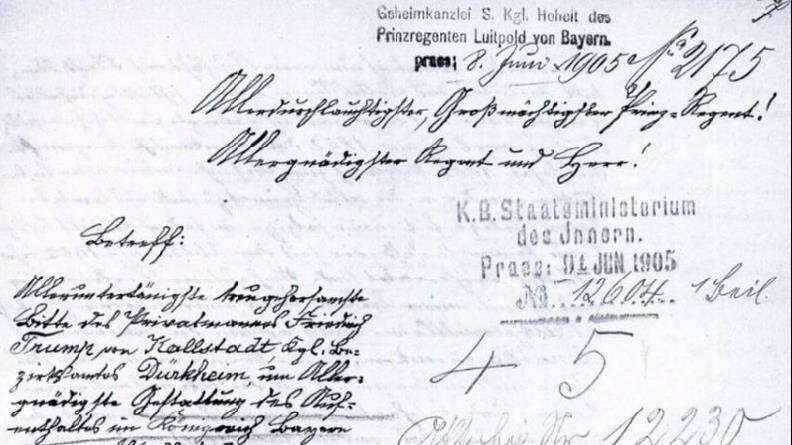 Geheimkanzlei S. Kgl. Hoheit des
Prinzregenten Luitpold von Bayern.
praes: 8. Juni 1905 No 2175
Allerdurchlauchtigster, Großmächtigster Prinz-Regent!
Allergnädigster Regent und Herr!
K. B. Staatsministerium
des Innern.
Praes: JUN. 1905
No. 12604. 1 Beil.
Betreff:
Alleruntertänigste treugehorsamste
Bitte des Privatmannes Friedrich
Trump von Kallstadt, Kgl. Be-
zirksamtes Dürkheim, um Aller-
gnädigste Gestattung des Auf-
enthaltes im Königreich Bayern
4 5
12230